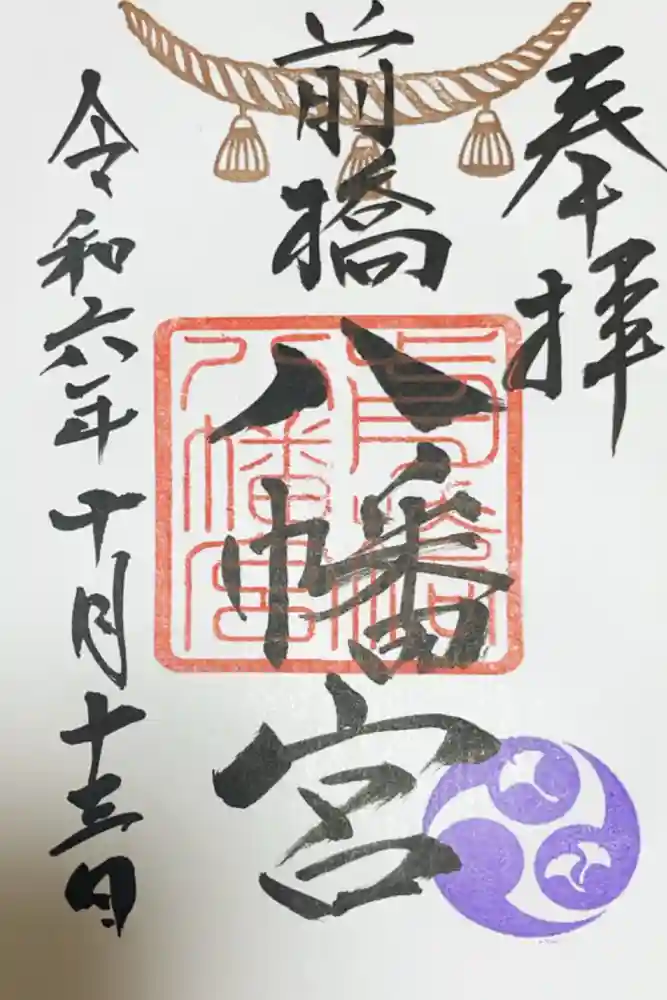 奉拝
前橋
八幡宮
令和六年十月十三日
前橋八幡宮